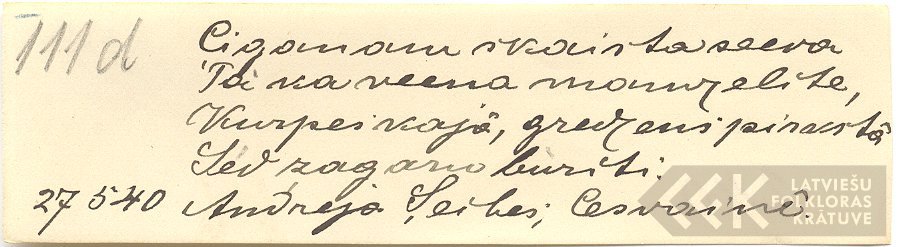 111 d
Ciganam skaista seeva
Tā ka veena mamzelite,
Kurpes kajâ, gredzens pirkstâ
Sēd zagano burīti.
27 5 40 Andreja Ķeibes, Cesvainē.
LATVIEŠU
FOLKLORAS
KRĀTUVE